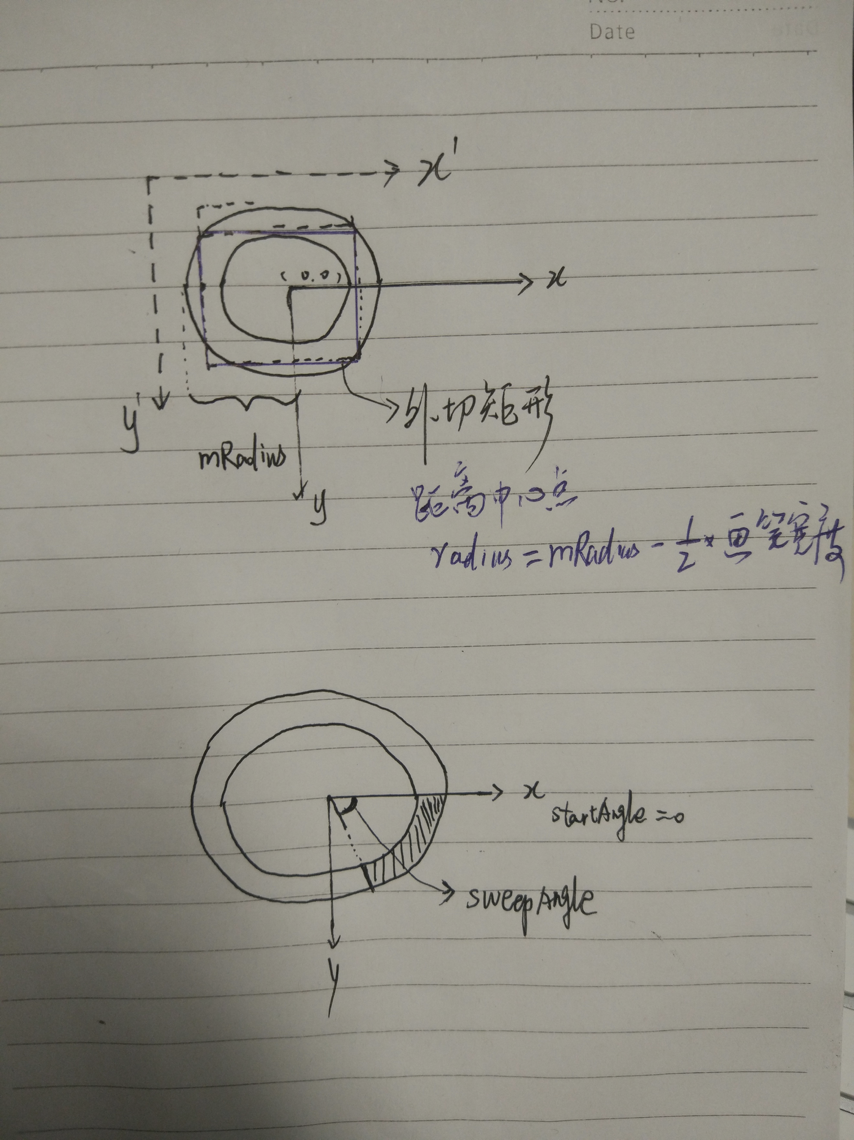 Date
x'
(0.0)
x
y'
外切矩形
mRadius
y
距离中心点
radius = mRadius - 1/2 * 画笔宽度
x
startAngle = 0
sweepAngle
y